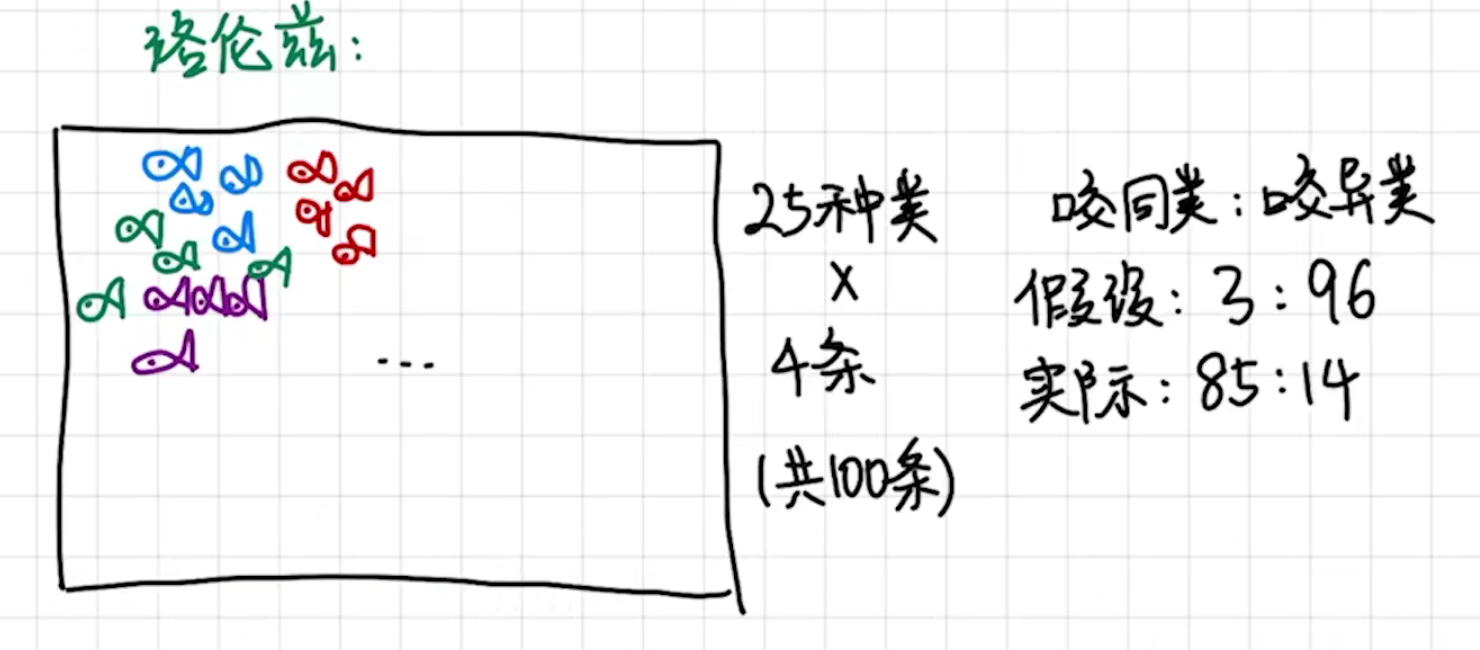 洛伦兹:
25种类
×
4条
(共100条)
咬同类:咬异类
假设:3:96
实际:85:14
...